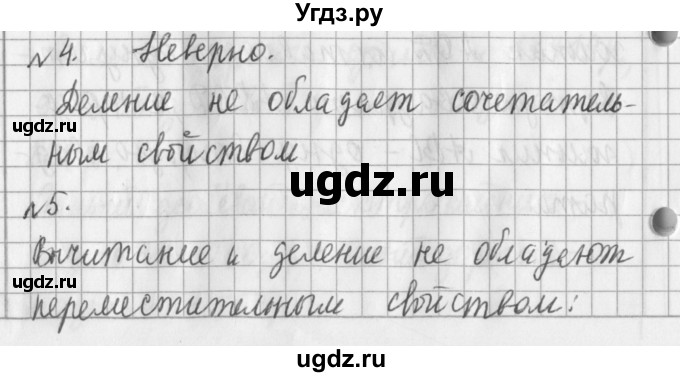 Угдз.ру
№4. Неверно.
Деление не обладает сочетатель-
ugdz.ru ugdz.ru
ным свойством
ugdz.ru
№5.
Вычитание и деление не обладают
ugdz.ru
переместительным свойством.
ugdz.ru